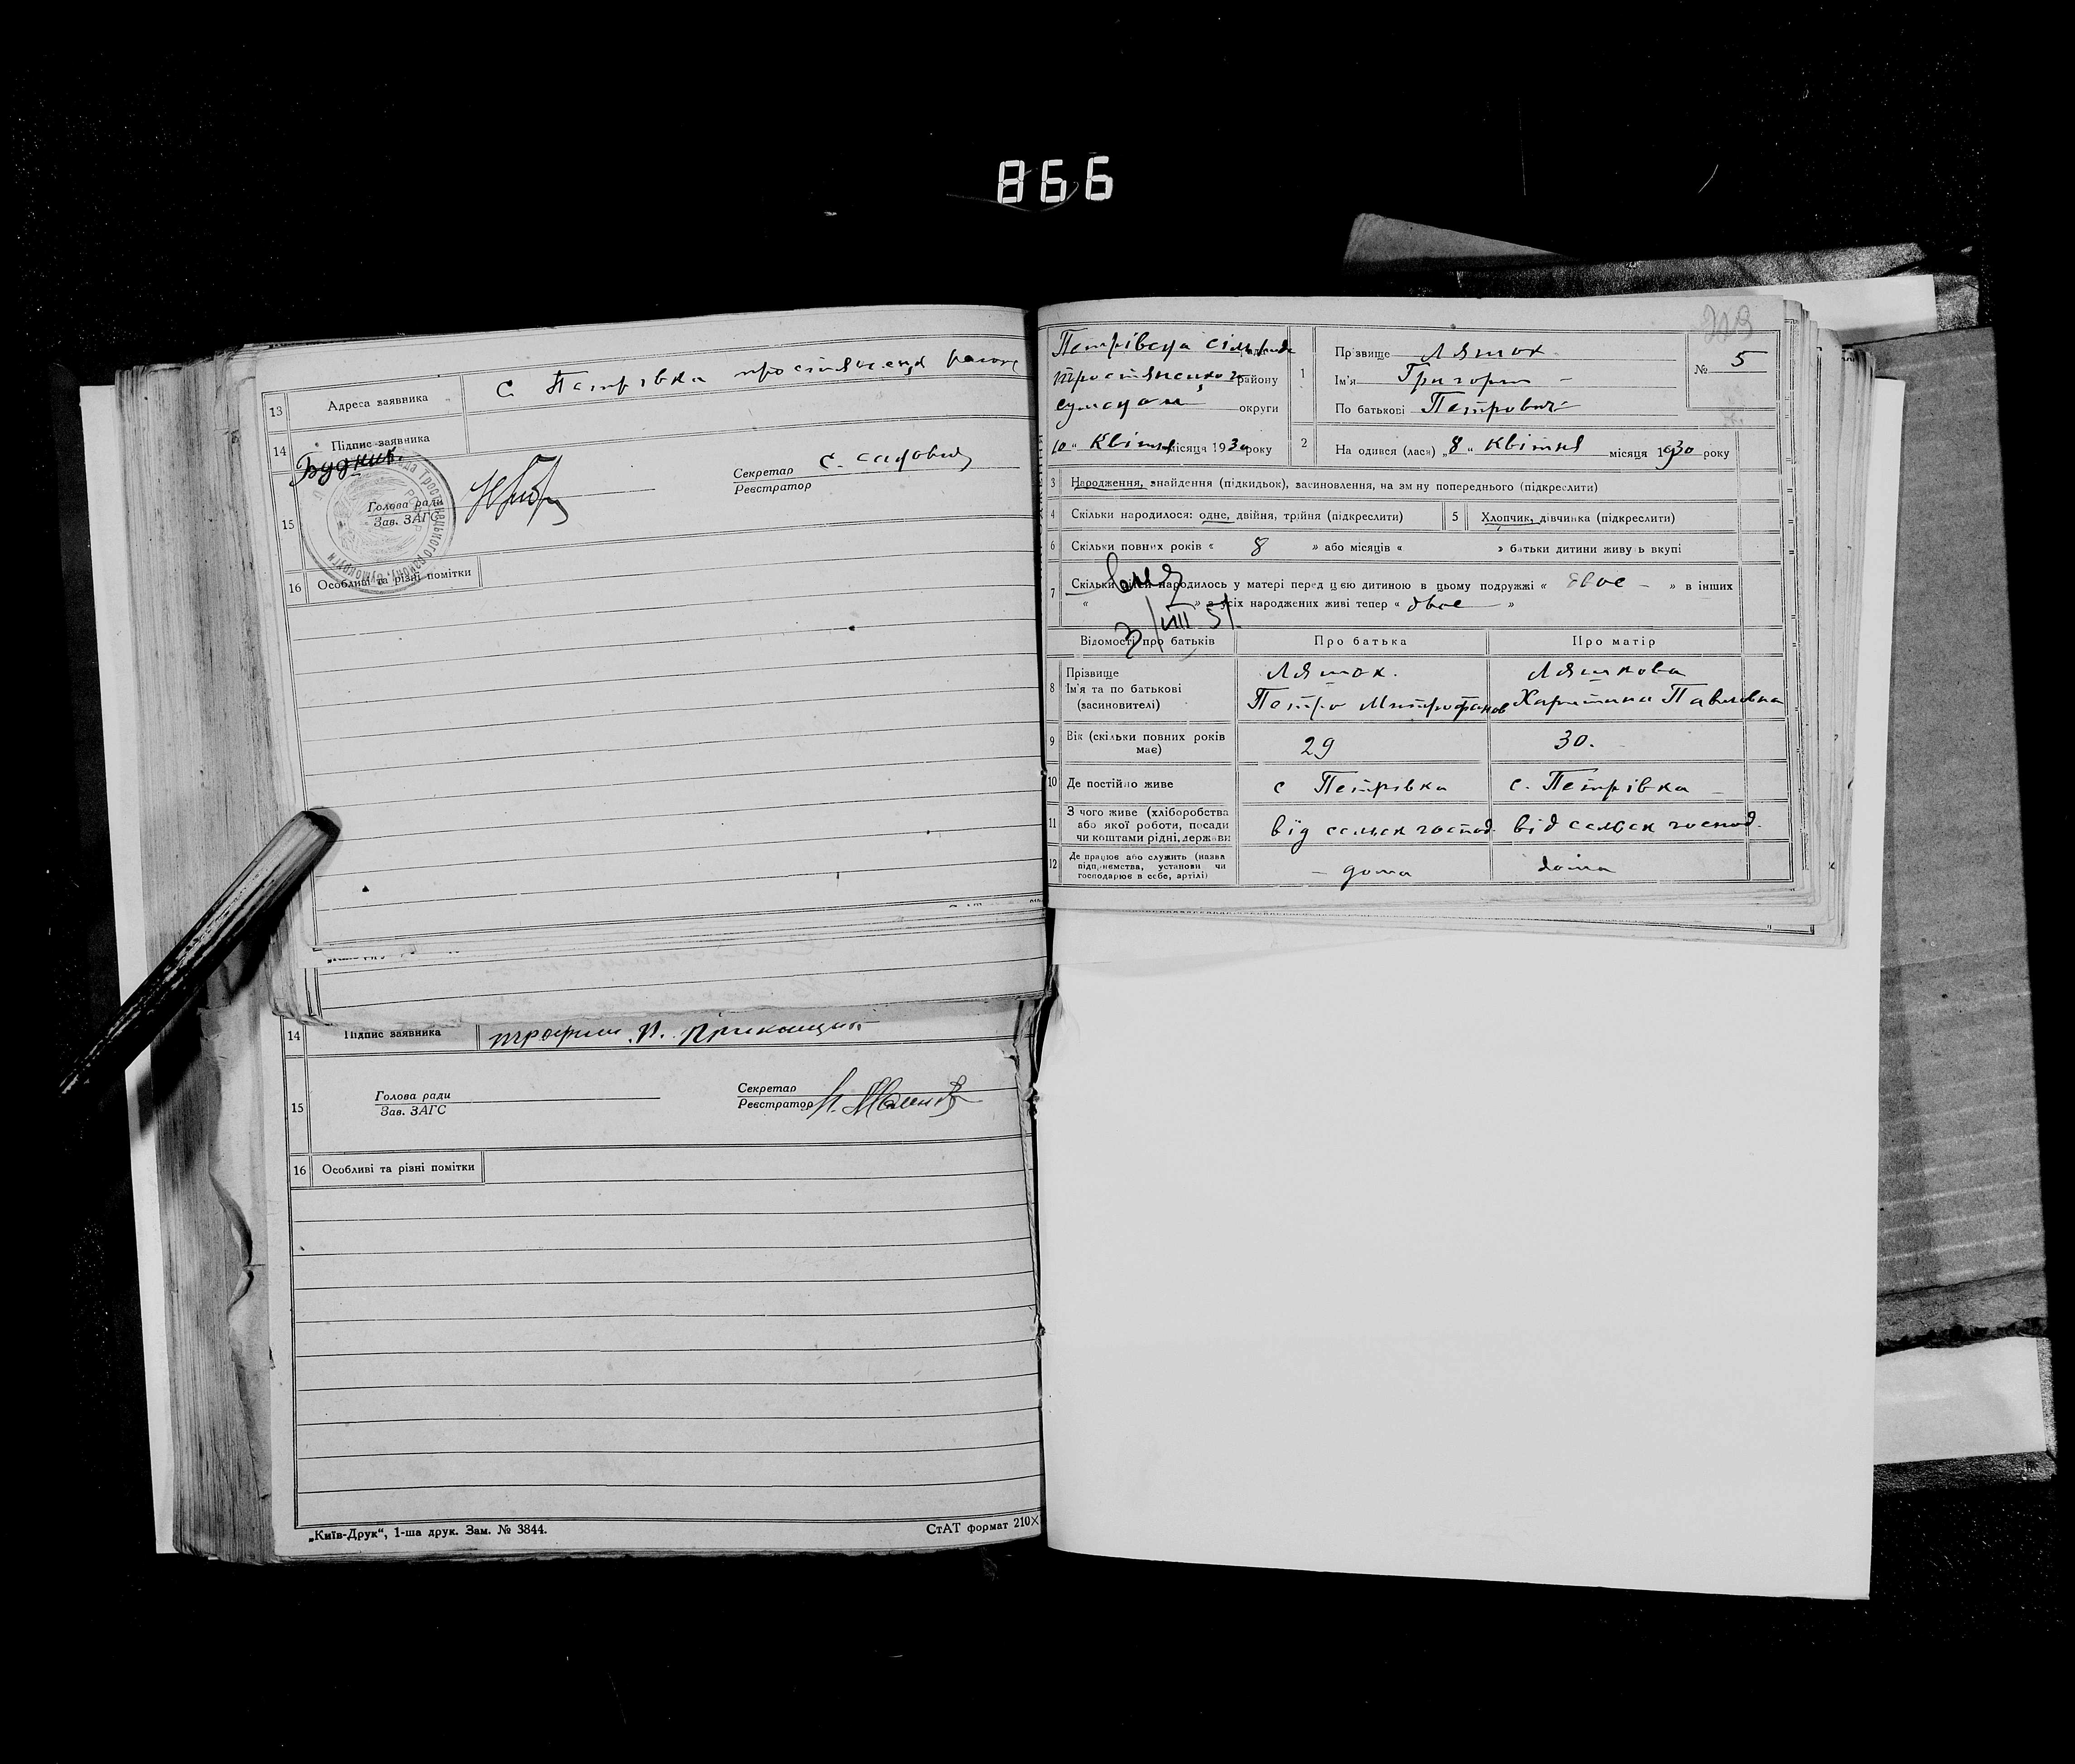 866
13 Адреса заявника С. Петрівка
14 Підпис заявника
Будник.
15 Голова ради
Зав. ЗАГС
Секретар
Реєстратор
16 Особливі та різні помітки
14 Підпис заявника
15 Голова ради
Зав. ЗАГС
Секретар
Реєстратор
16 Особливі та різні помітки
„Київ-Друк“, 1-ша друк. Зам. № 3844.
СтАТ формат 210×
223
Петрівська
району
округи
10 „ Квітня місяця 1930 року
1 Прізвище Ляшок
Ім'я Григорій
По батькові Петрович
№ 5
2 На одився (лася) „ 8 „ Квітня місяця 1930 року
3 Народження, знайдення (підкидьок), засиновлення, на зм ну попереднього (підкреслити)
4 Скільки народилося: одне, двійня, трійня (підкреслити)
5 Хлопчик, дівчинка (підкреслити)
6 Скільки повних років « 8 » або місяців « » батьки дитини живу ь вкупі
7 Скільки дітей народилось у матері перед цією дитиною в цьому подружжі « двоє » в інших
« » з усіх народжених живі тепер « двоє »
3/VIII 51.
Відомості про батьків Про батька Про матір
8 Прізвище Ляшок. Ляшкова
Ім'я та по батькові
(засиновителі)
Петро Митрофанов Харитина Павловна
9 Вік (скільки повних років має) 29 30.
10 Де постійно живе с Петрівка с. Петрівка
11 З чого живе (хліборобства
або якої роботи, посади
чи коштами рідні, держави
від сельск господ. від сельск господ.
12 Де працює або служить (назва
підприємства, установи чи
господарює в себе, артілі)
дома дома